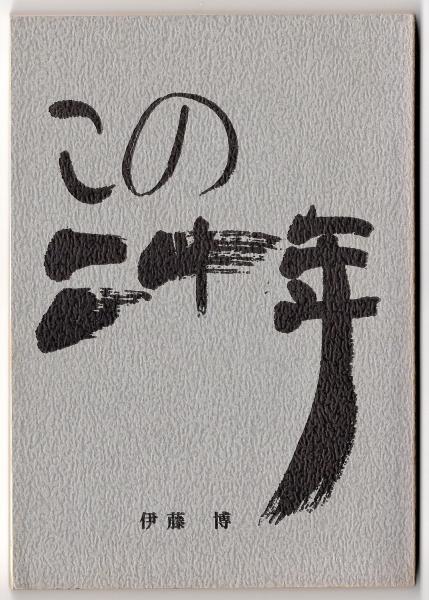 この
二十年
伊藤 博